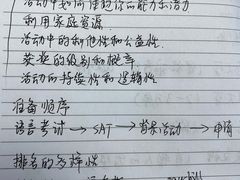 活动中如何体现你的能力和活力
利用家庭资源
活动中的利他性和公益性
获奖的级别和概率
活动的持续性和逻辑性
准备顺序
语言考试 → SAT → 背景活动 → 申请
排名的多样性